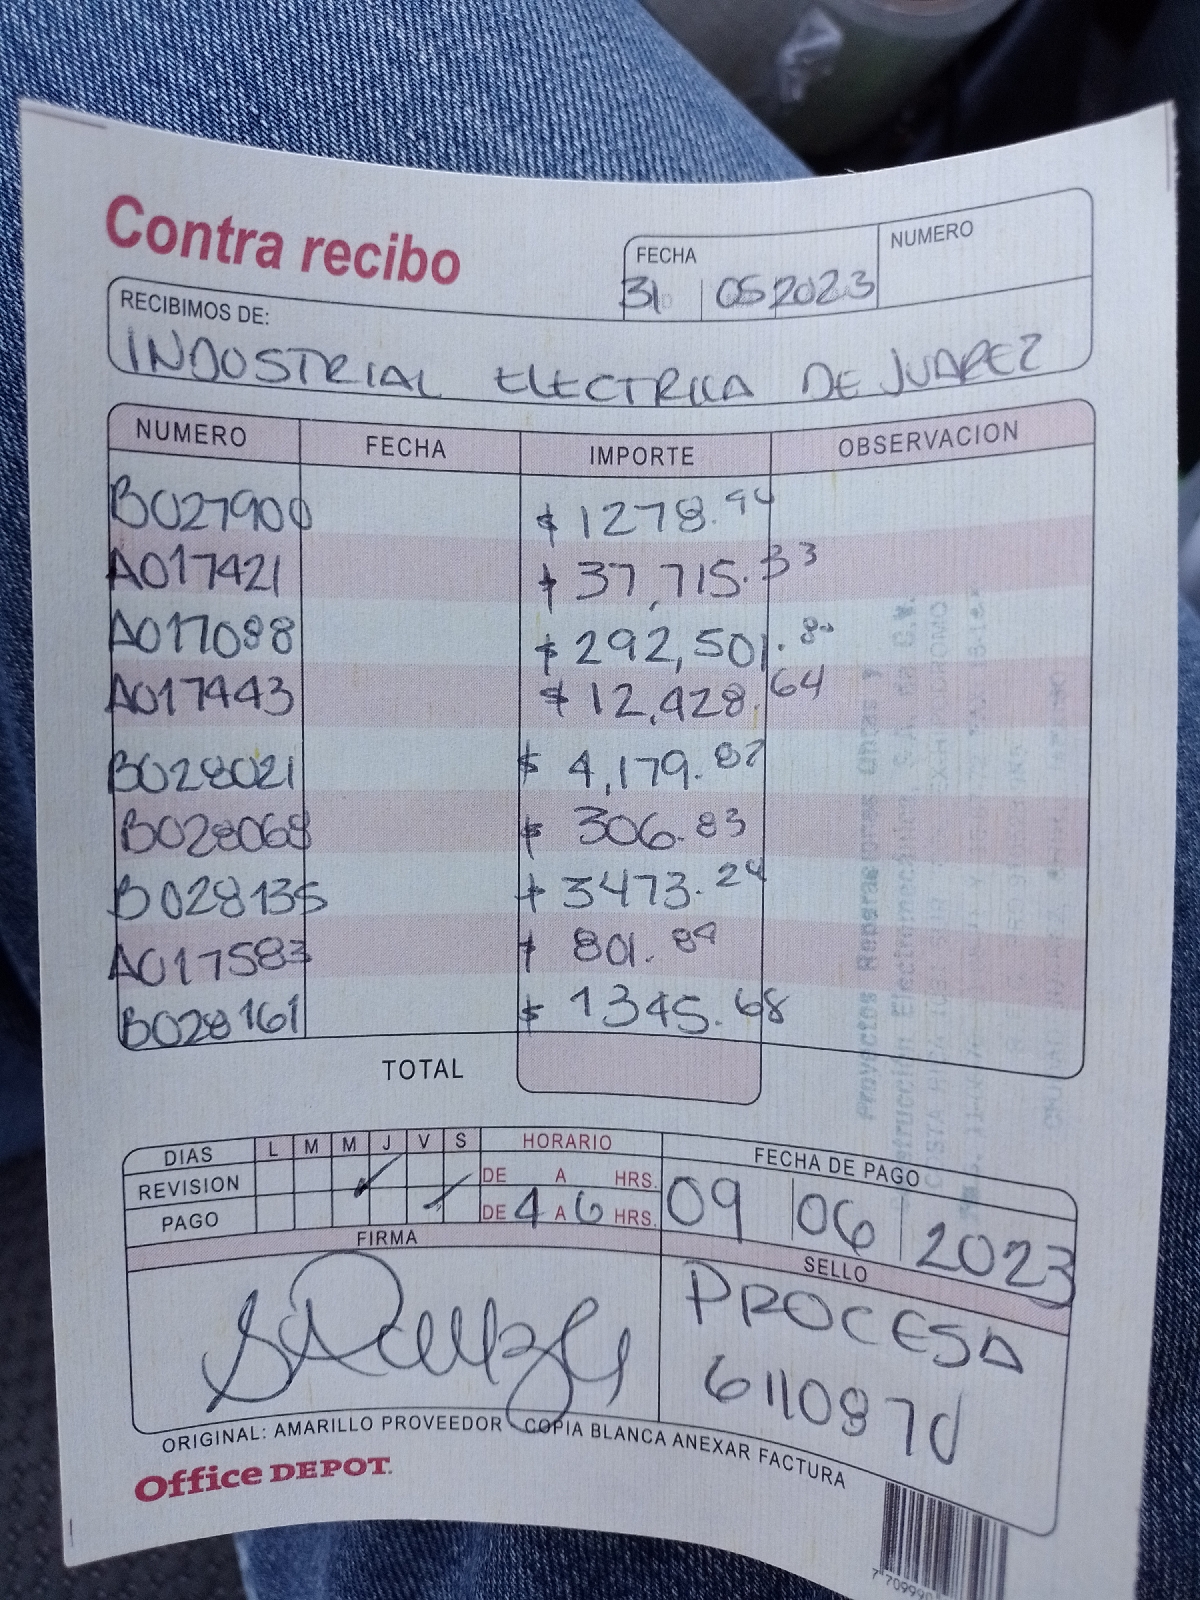 Contra recibo
FECHA
NUMERO
31 05 2023
RECIBIMOS DE:
INDUSTRIAL ELECTRICA DE JUAREZ
NUMERO FECHA IMPORTE OBSERVACION
B027900 $ 1278.94
A017421 $ 37,715.33
A017088 $ 292,501.80
A017443 $ 12,428.64
B028021 $ 4,179.87
B028068 $ 306.83
B028135 $ 3473.24
A017583 $ 801.84
B028161 $ 1345.68
TOTAL
DIAS L M M J V S HORARIO FECHA DE PAGO
REVISION DE A HRS.
PAGO DE 4 A 6 HRS. 09 06 2023
FIRMA SELLO
PROCESA
ORIGINAL: AMARILLO PROVEEDOR COPIA BLANCA ANEXAR FACTURA
Office DEPOT.